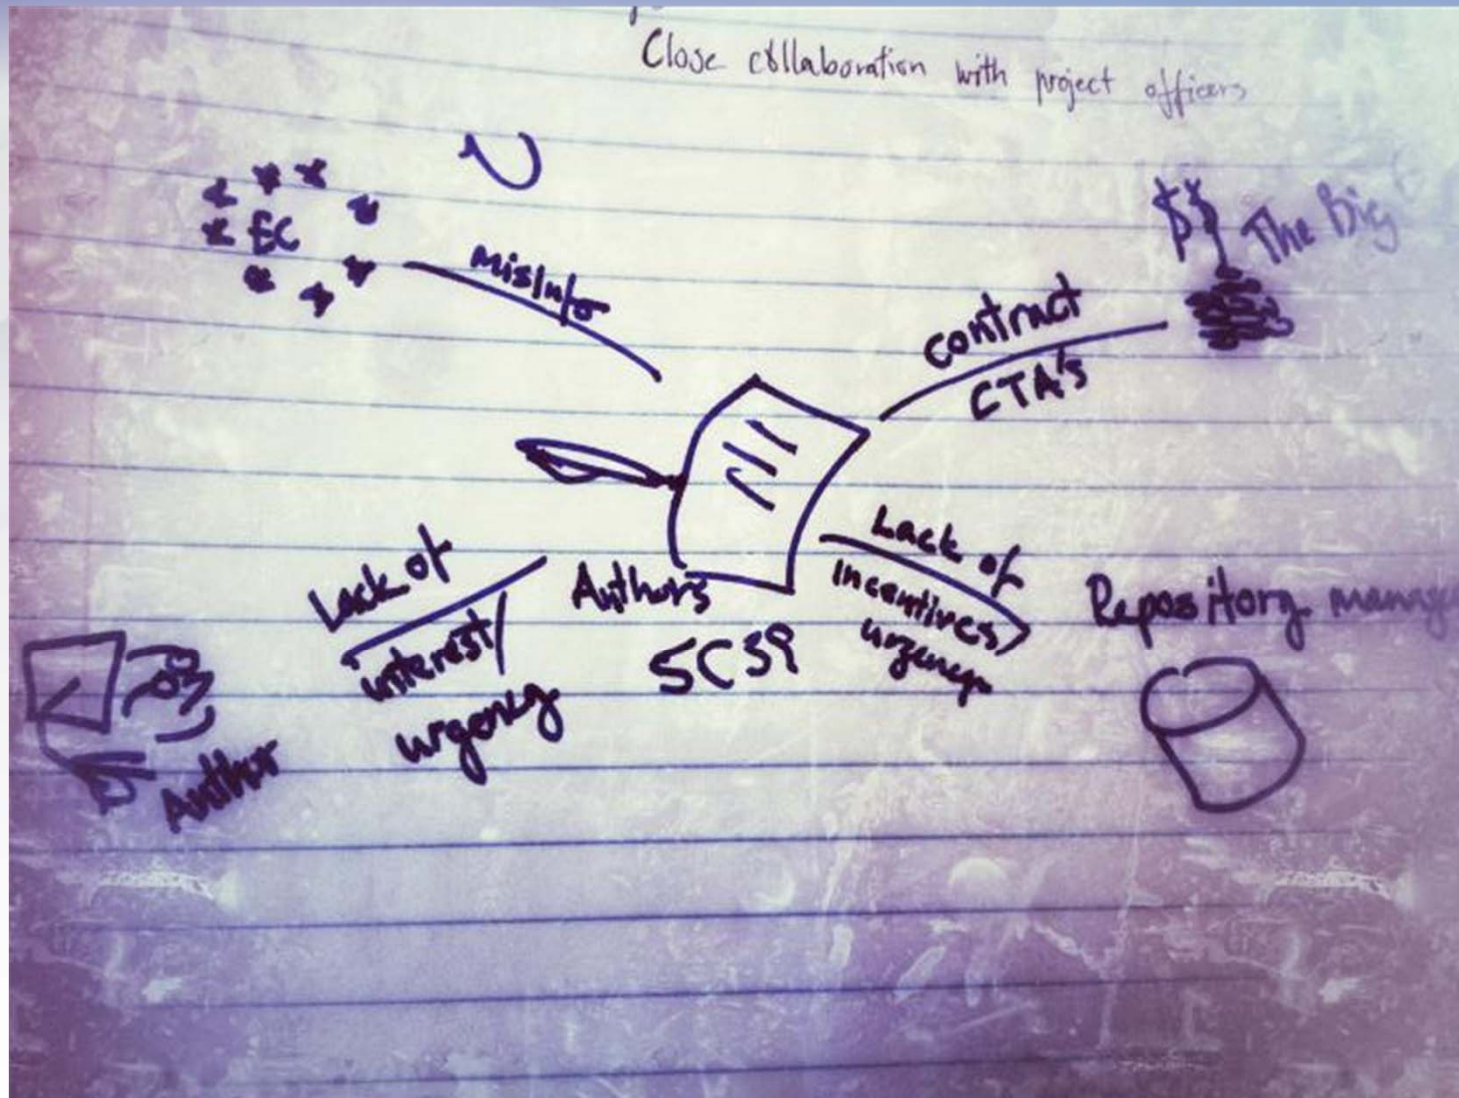 Close collaboration with project officers
EC
Misinfo
$$ The Big
contract
CTA's
Lack of
interest/
urgency
Authors
SC39
Lack of
incentives/
urgency
Repository manage
Author